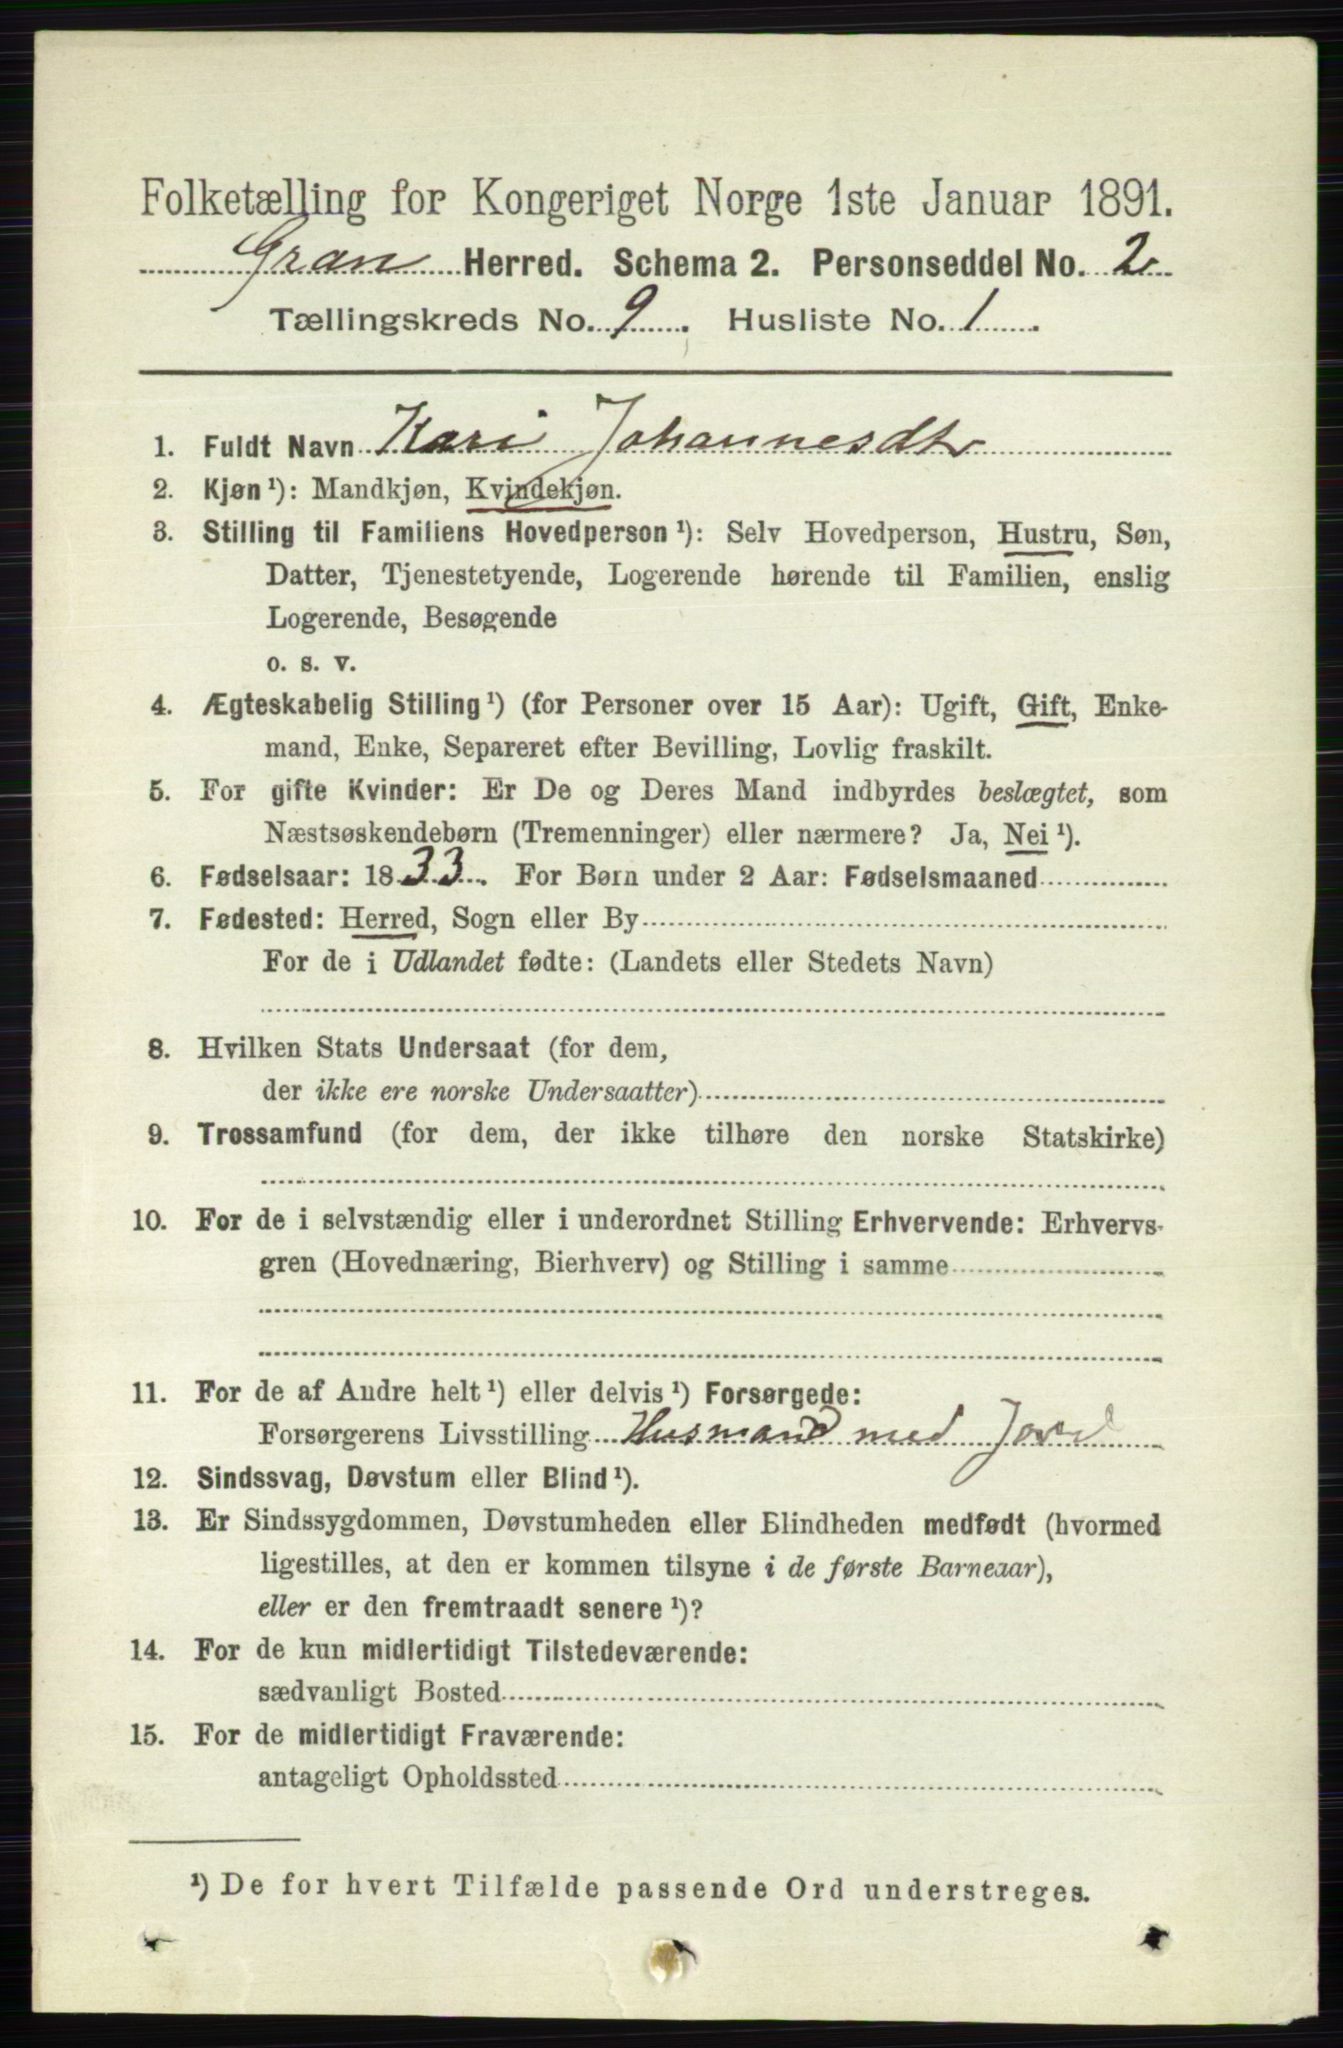 Folketælling for Kongeriget Norge 1ste Januar 1891.
Gran Herred. Schema 2. Personseddel No. 2
Tællingskreds No. 9. Husliste No. 1.
1. Fuldt Navn Kari Johannesdtr
2. Kjøn¹): Mandkjøn, Kvindekjøn.
3. Stilling til Familiens Hovedperson¹): Selv Hovedperson, Hustru, Søn,
Datter, Tjenestetyende, Logerende hørende til Familien, enslig
Logerende, Besøgende
o. s. v.
4. Ægteskabelig Stilling¹) (for Personer over 15 Aar): Ugift, Gift, Enke-
mand, Enke, Separeret efter Bevilling, Lovlig fraskilt.
5. For gifte Kvinder: Er De og Deres Mand indbyrdes beslægtet, som
Næstsøskendebørn (Tremenninger) eller nærmere? Ja, Nei¹).
6. Fødselsaar: 1833. For Børn under 2 Aar: Fødselsmaaned
7. Fødested: Herred, Sogn eller By
For de i Udlandet fødte: (Landets eller Stedets Navn)
8. Hvilken Stats Undersaat (for dem,
der ikke ere norske Undersaatter)
9. Trossamfund (for dem, der ikke tilhøre den norske Statskirke)
10. For de i selvstændig eller i underordnet Stilling Erhvervende: Erhvervs-
gren (Hovednæring, Bierhverv) og Stilling i samme
11. For de af Andre helt¹) eller delvis¹) Forsørgede:
Forsørgerens Livsstilling Husmand med Jord
12. Sindssvag, Døvstum eller Blind¹).
13. Er Sindssygdommen, Døvstumheden eller Blindheden medfødt (hvormed
ligestilles, at den er kommen tilsyne i de første Barneaar),
eller er den fremtraadt senere¹)?
14. For de kun midlertidigt Tilstedeværende:
sædvanligt Bosted
15. For de midlertidigt Fraværende:
antageligt Opholdssted
¹) De for hvert Tilfælde passende Ord understreges.